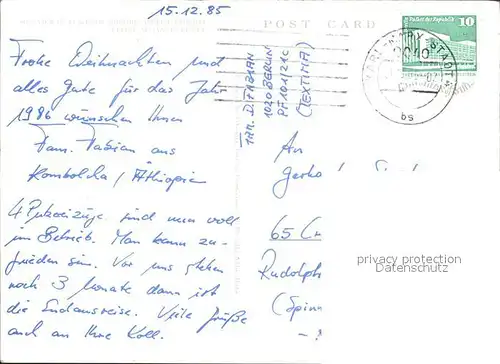 15.12.85
POST CARD
Frohe Weihnachten und
alles Gute für das Jahr
1986 wünschen Ihnen
Fam. Fabian aus
Kombolcha / Äthiopien
4 Putzereizüge sind nun voll
im Betrieb. Man kann zu-
frieden sein. Vor uns stehen
noch 3 Monate dann ist
die Endausreise. Viele Grüße
auch an Ihre Koll.
FAM. D. FABIAN
1020 BERLIN
PF. 101/210
(TEXTIMA)
Palast der Republik
10
KARL-MARX-STADT
bs
An
65 
Rudolph
(Spinn
privacy protection
Datenschutz